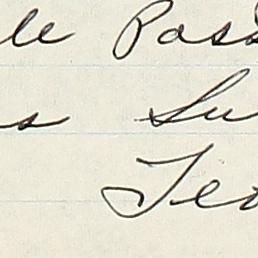 le Pass
s Su
Teo